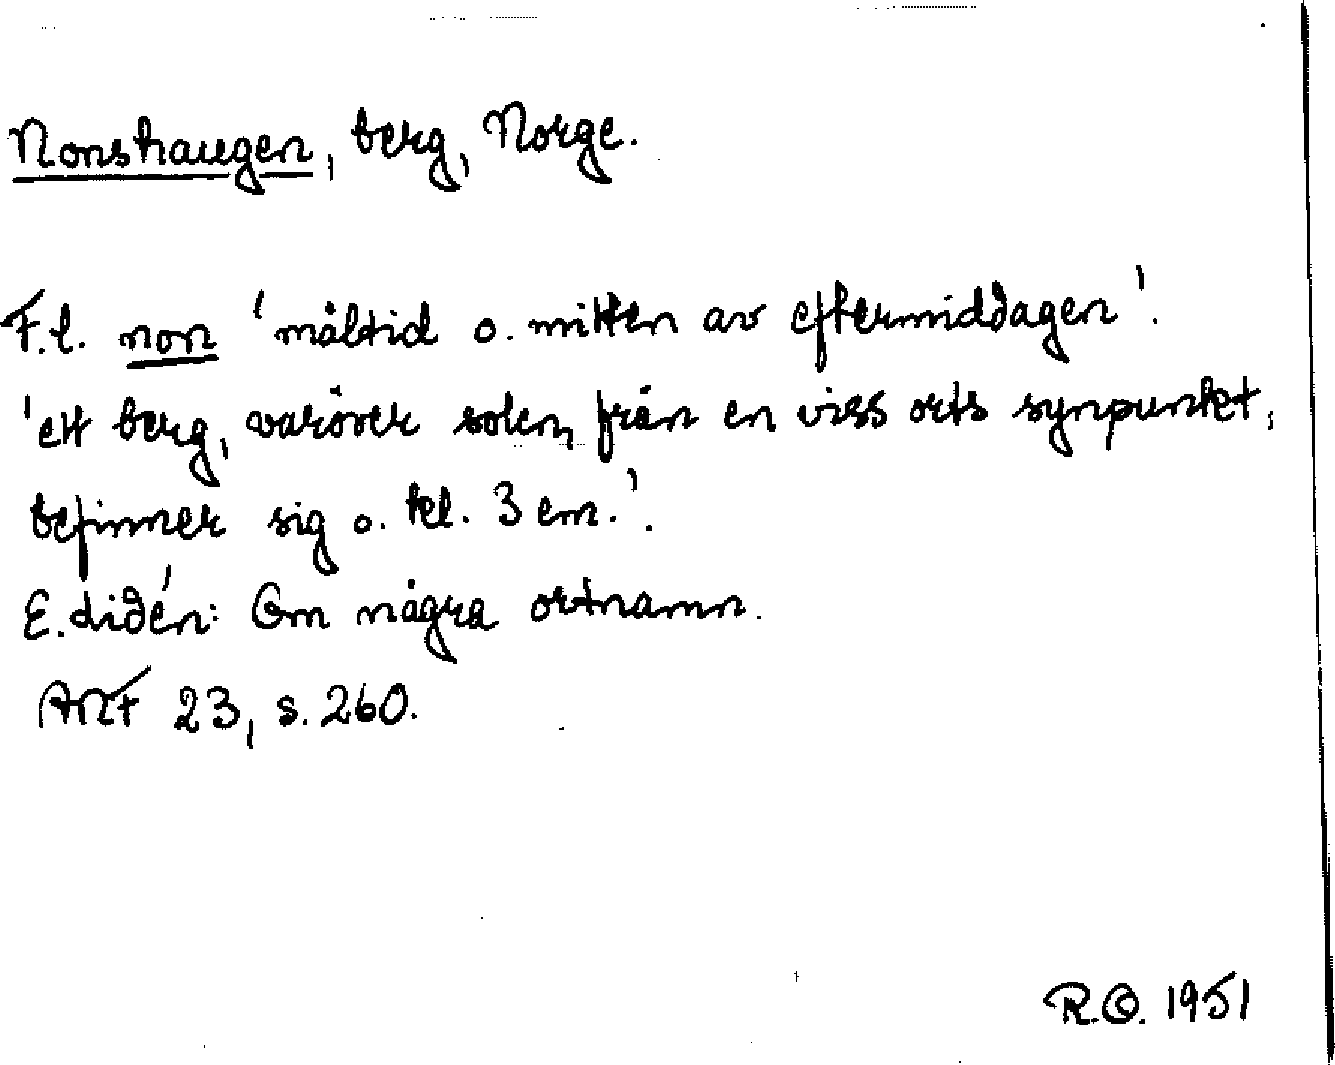 Nonshaugen, berg, Norge.
F.l. non 'måltid o. mitten av eftermiddagen'.
'ett berg, varöver solen, från en viss orts synpunkt,
befinner sig o. kl. 3 em.'.
E. Lidén: Om några ortnamn.
ANF 23, s. 260.
R.O. 1951